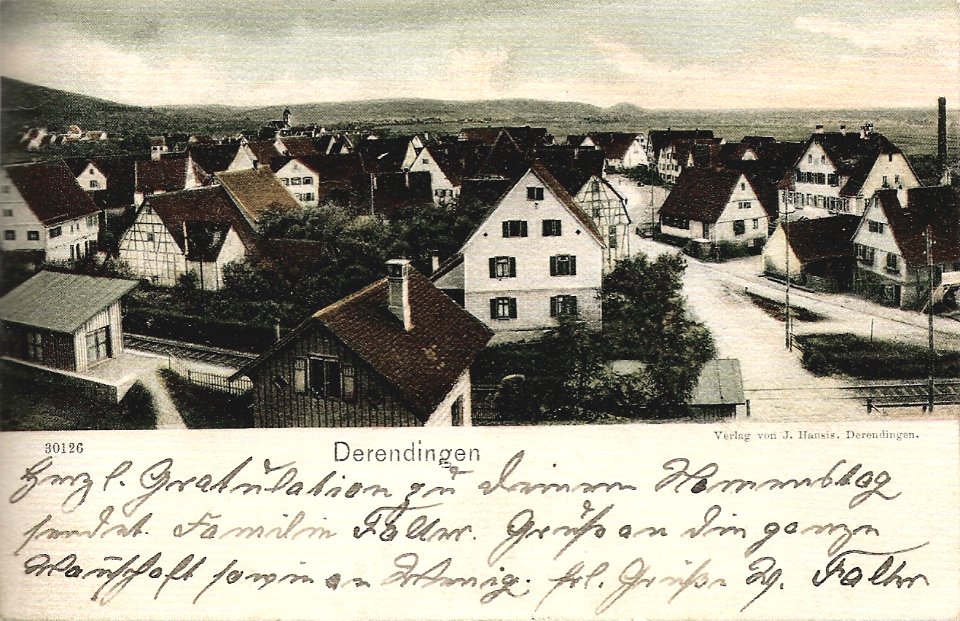 30126
Derendingen
Verlag von J. Hansis. Derendingen.
Herzl. Gratulation zu deinem Namenstag
sendet. Familie Faller. Grüße an die ganze
sowie an frl. Grüße W. Faller